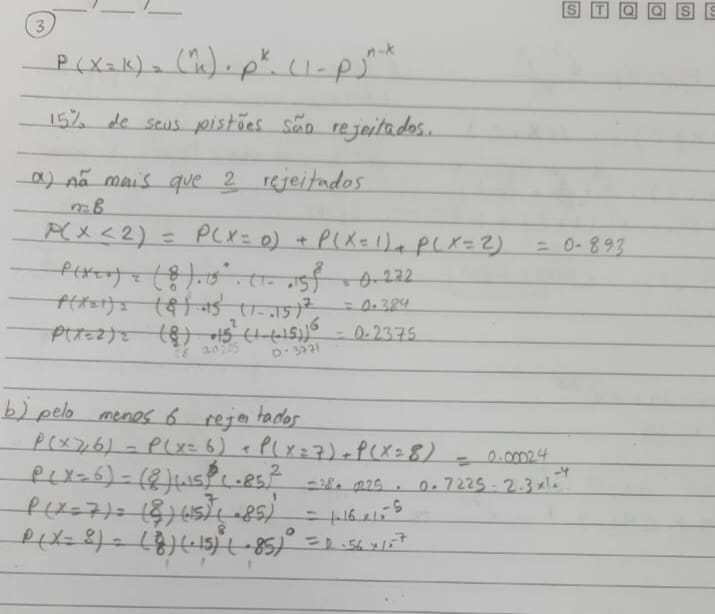 S T Q Q S S
3
P(X=k) = (n k) · p^k · (1-p)^n-k
15% de seus pistões são rejeitados.
a) nã mais que 2 rejeitados
n=8
P(X≤2) = P(X=0) + P(X=1) + P(X=2) = 0.893
P(X=0) = (8 0) .15^0 · (1-.15)^8 = 0.272
P(X=1) = (8 1) .15^1 (1-.15)^7 = 0.384
P(X=2) = (8 2) .15^2 (1-(.15))^6 = 0.2375
28 0.0225 0.3771
b) pelo menos 6 rejeitados
P(X≥6) = P(X=6) + P(X=7) + P(X=8) = 0.00024
P(X=6) = (8 6) (.15)^6 (.85)^2 = 0.7225 = 2.3x10^-4
P(X=7) = (8 7) (.15)^7 (.85)^1 = 1.16x10^-5
P(X=8) = (8 8) (.15)^8 (.85)^0 = 2.56x10^-7
1 1 1